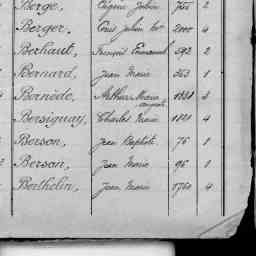 Berge, Eugène Julien 766 2
Berger, Louis Julien 2000 4
Berhaut, François Emmanuel 592 2
Bernard, Jean Marie 363 1
Bernède, Arthur Marie 1881 4
Bersiguay, Charles Marie 1881 4
Berson, Jean Baptiste 76 1
Berson, Jean Marie 96 1
Berthelin, Jean Marie 1760 4